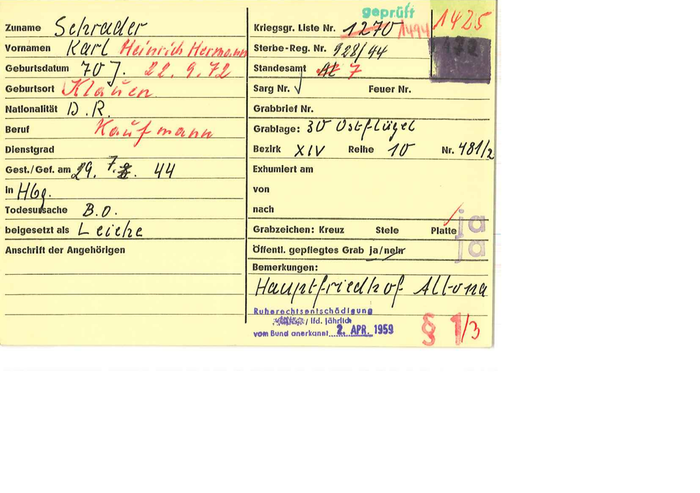 geprüft
Zuname Schrader
Vornamen Karl Heinrich Hermann
Geburtsdatum 70 J. 22.9.72
Geburtsort Klauen
Nationalität D.R.
Beruf Kaufmann
Dienstgrad
Gest./Gef. am 29. 7. 44
in Hbg.
Todesursache B.O.
beigesetzt als Leiche
Anschrift der Angehörigen
Kriegsgr. Liste Nr. 1270 1494 1425
Sterbe-Reg. Nr. 928/44
Standesamt 7
Sarg Nr. Feuer Nr.
Grabbrief Nr.
Grablage: 30 Ostflügel
Bezirk XIV Reihe 10 Nr. 481/2
Exhumiert am
von
nach
Grabzeichen: Kreuz Stele Platte ja
Öffentl. gepflegtes Grab ja/nein ja
Bemerkungen:
Hauptfriedhof Altona
Ruherechtsentschädigung
/ lfd. jährlich
vom Bund anerkannt 2. APR. 1959
§ 1/3